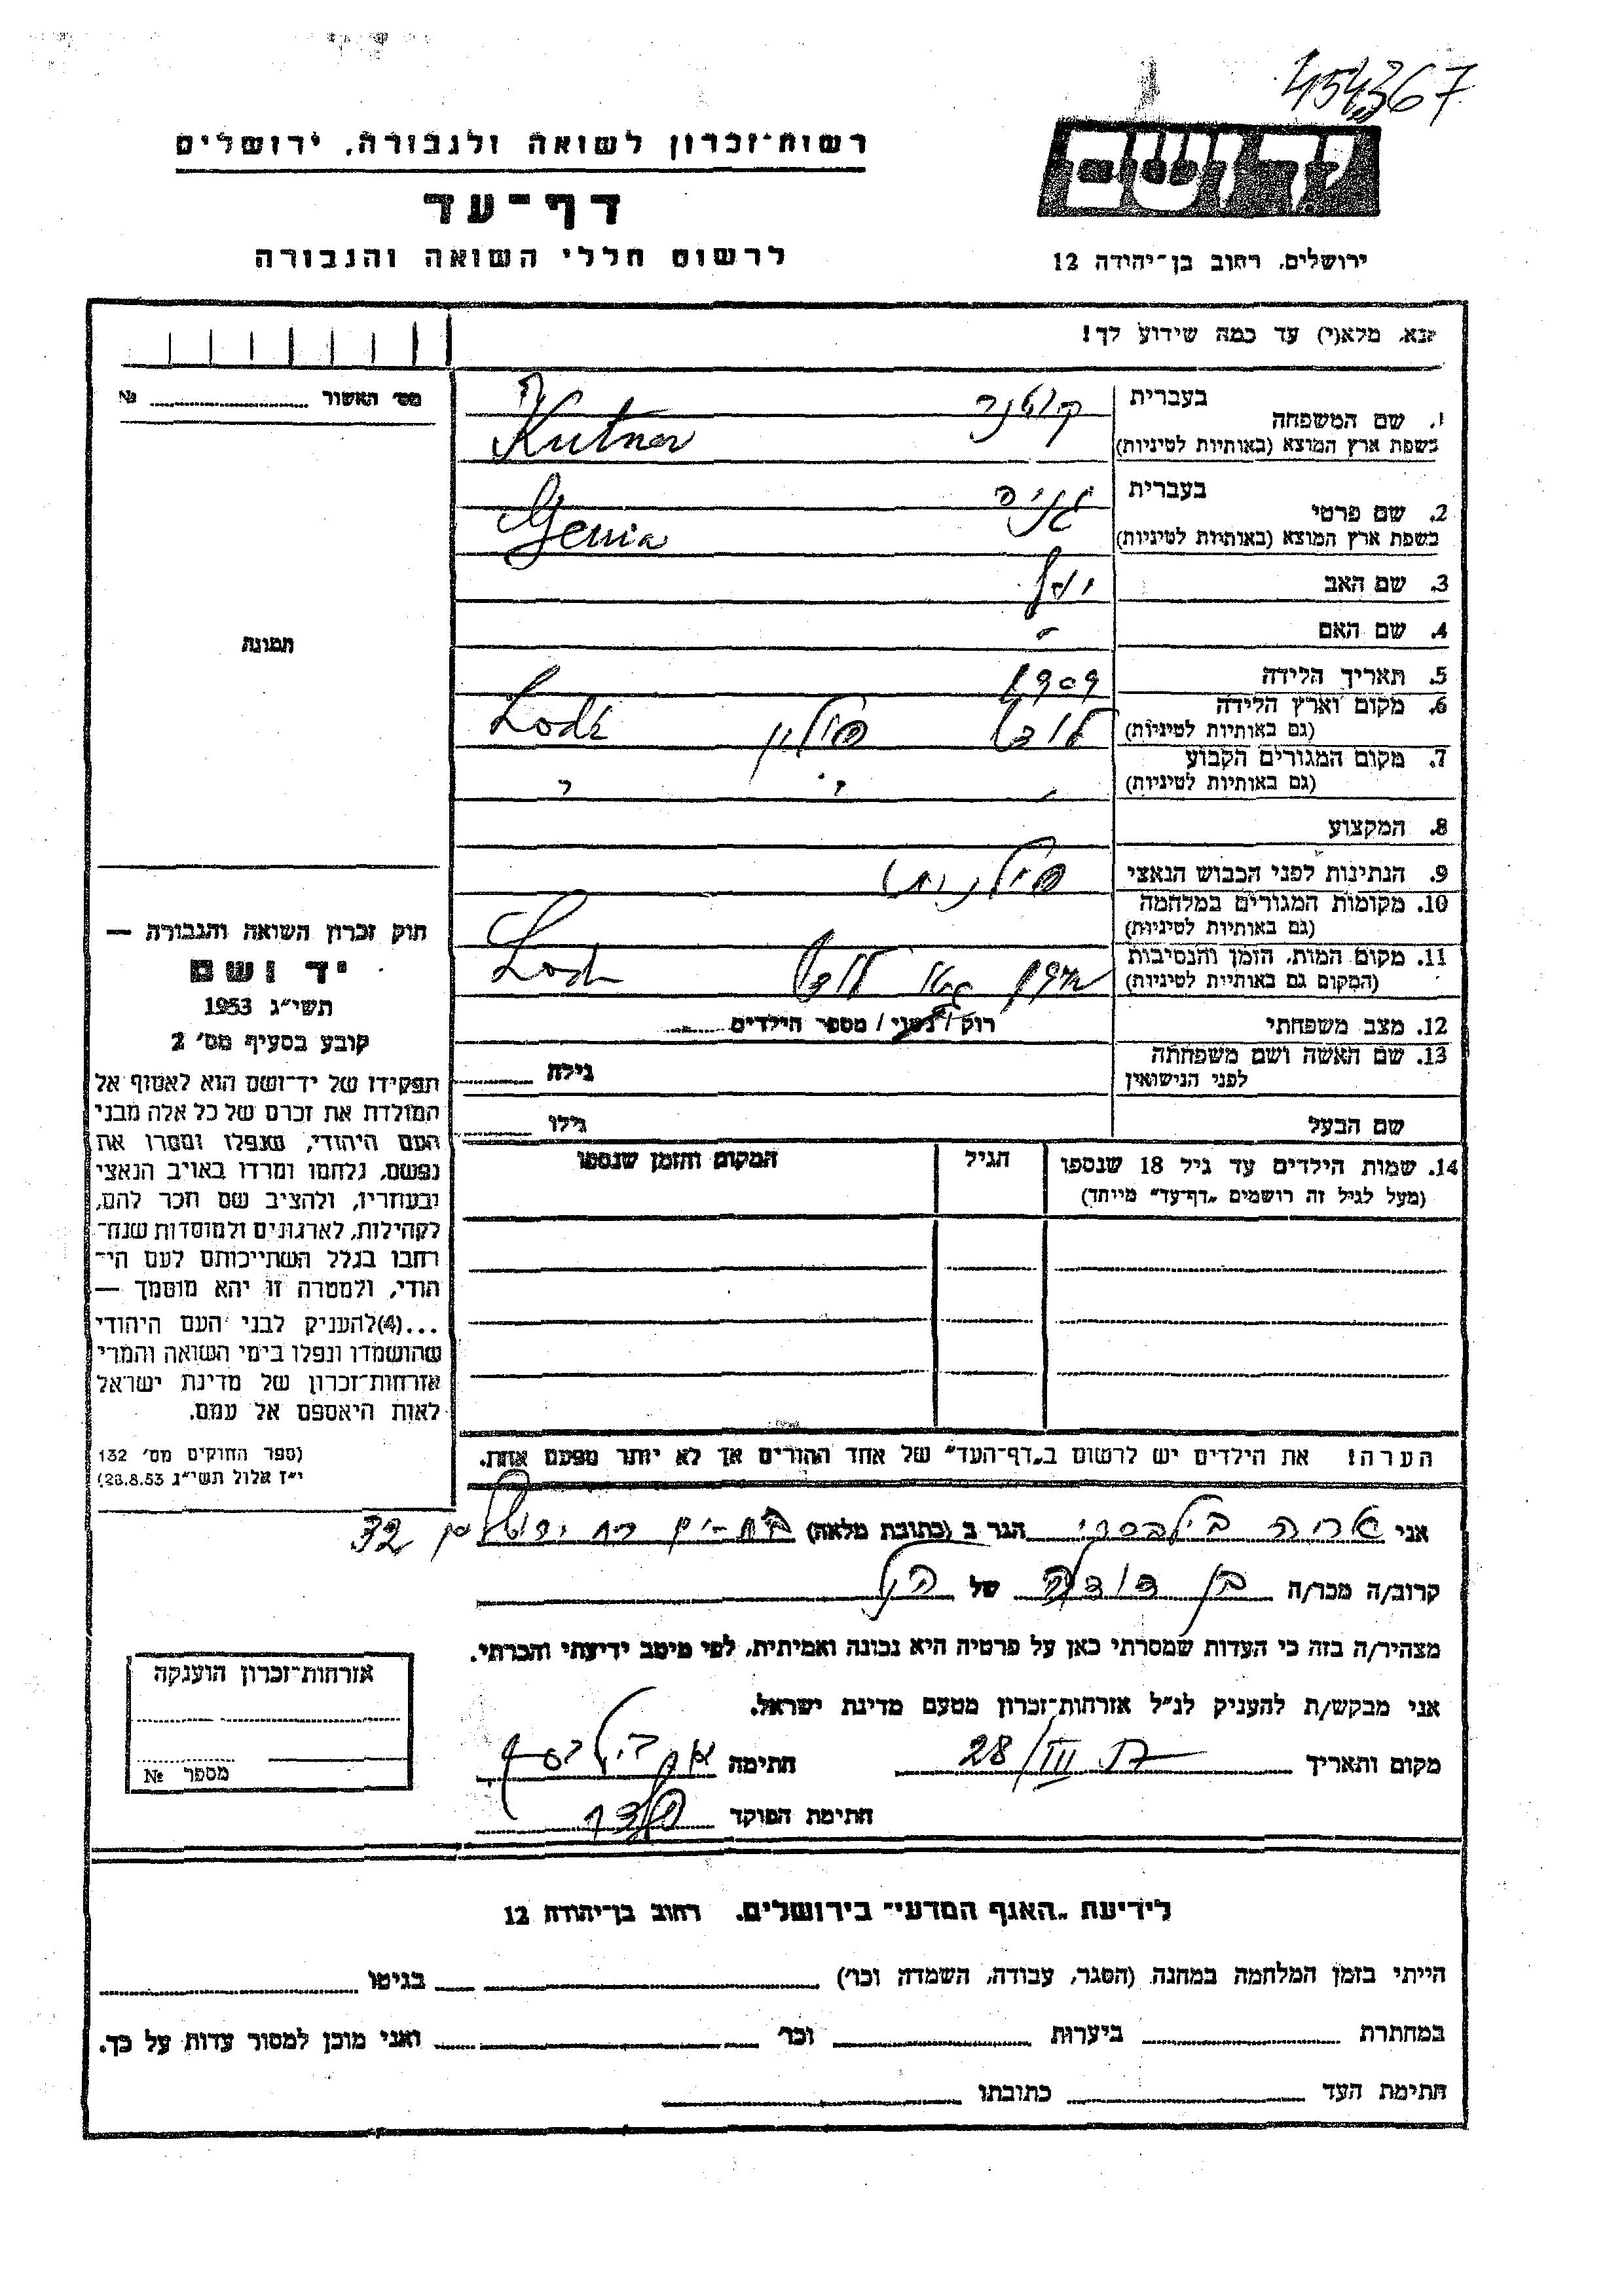 454367
רשות־זכרון לשואה ולגבורה, ירושלים
דף־עד
לרשום חללי השואה והגבורה
יד ושם
ירושלים, רחוב בן־יהודה 12
נא, מלא(י) עד כמה שידוע לך!
מס׳ האשור №
1. שם המשפחה
בעברית קוטנר
בשפת ארץ המוצא (באותיות לטיניות) Kutner
2. שם פרטי
בעברית גניה
בשפת ארץ המוצא (באותיות לטיניות) Genia
3. שם האב יוסף
4. שם האם -
5. תאריך הלידה 1909
6. מקום וארץ הלידה
(גם באותיות לטיניות) לודז' פולין Lodz
7. מקום המגורים הקבוע
(גם באותיות לטיניות) " " "
8. המקצוע
9. הנתינות לפני הכבוש הנאצי פולנית
10. מקומות המגורים במלחמה
(גם באותיות לטיניות)
11. מקום המות, הזמן והנסיבות
(המקום גם באותיות לטיניות) גטו לודז' Lodz
12. מצב משפחתי רוק / נשוי / מספר הילדים
13. שם האשה ושם משפחתה
לפני הנישואין גילה
שם הבעל גילו
14. שמות הילדים עד גיל 18 שנספו הגיל המקום והזמן שנספו
(מעל לגיל זה רושמים „דף־עד” מיוחד)
הערה! את הילדים יש לרשום ב„דף־העד” של אחד ההורים אך לא יותר מפעם אחת.
תמונה
חוק זכרון השואה והגבורה —
יד ושם
תשי״ג 1953
קובע בסעיף מס׳ 2
תפקידו של יד־ושם הוא לאסוף אל
המולדת את זכרם של כל אלה מבני
העם היהודי, שנפלו ומסרו את
נפשם, נלחמו ומרדו באויב הנאצי
ובעוזריו, ולהציב שם וזכר להם,
לקהילות, לארגונים ולמוסדות שנח־
רחבו בגלל השתייכותם לעם הי־
הודי, ולמטרה זו יהא מוסמך —
...(4)להעניק לבני העם היהודי
שהושמדו ונפלו בימי השואה והמרי
אזרחות־זכרון של מדינת ישראל
לאות היאספם אל עמם.
(ספר החוקים מס׳ 132
י״ז אלול תשי״ג 28.8.53)
אני אריה בילבסקי הגר ב (כתובת מלאה) בת-ים רח ירושלים 32
קרוב/ה מכר/ה בן דודה של הנ"ל
מצהיר/ה בזה כי העדות שמסרתי כאן על פרטיה היא נכונה ואמיתית, לפי מיטב ידיעתי והכרתי.
אני מבקש/ת להעניק לנ״ל אזרחות־זכרון מטעם מדינת ישראל.
מקום ותאריך 28/III חתימה
חתימת הפוקד
אזרחות־זכרון הוענקה
מספר №
לידיעת „האגף המדעי״ בירושלים, רחוב בן־יהודה 12
הייתי בזמן המלחמה במחנה (הסגר, עבודה, השמדה וכו׳) בגיטו
במחתרת ביערות וכו׳ ואני מוכן למסור עדות על כך.
חתימת העד כתובתו